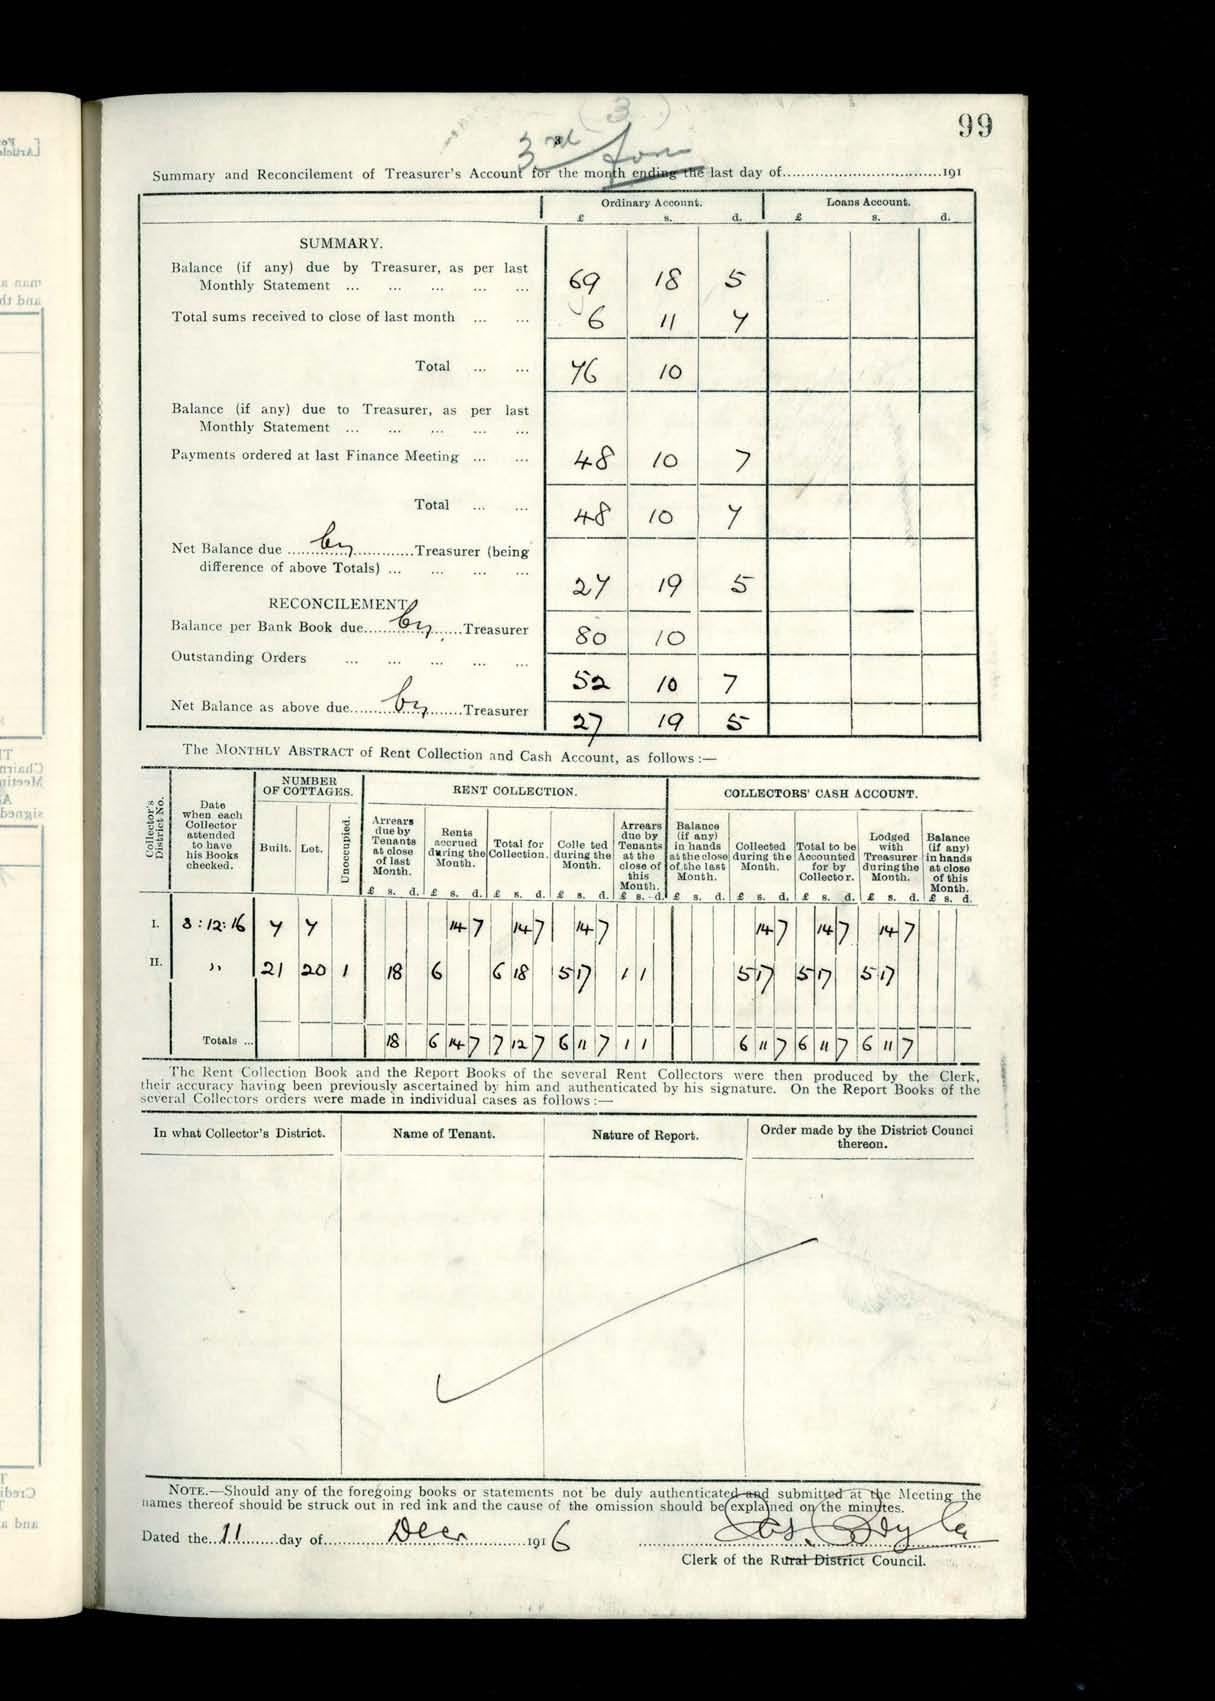 99
(3)
3rd
Summary and Reconcilement of Treasurer's Account for the month ending the last day of 191
Ordinary Account. Loans Account.
£ s. d. £ s. d.
SUMMARY.
Balance (if any) due by Treasurer, as per last
Monthly Statement ... ... ... ... ... 69 18 5
Total sums received to close of last month ... ... 6 11 7
Total ... ... 76 10
Balance (if any) due to Treasurer, as per last
Monthly Statement ... ... ... ... ...
Payments ordered at last Finance Meeting ... ... 48 10 7
Total ... ... 48 10 7
Net Balance due by Treasurer (being
difference of above Totals) ... ... ... ... 27 19 5
RECONCILEMENT
Balance per Bank Book due by Treasurer 80 10
Outstanding Orders ... ... ... ... ... 52 10 7
Net Balance as above due by Treasurer 27 19 5
The MONTHLY ABSTRACT of Rent Collection and Cash Account, as follows :—
Collector's District No.
Date when each Collector attended to have his Books checked.
NUMBER OF COTTAGES.
Built. Let. Unoccupied.
RENT COLLECTION.
Arrears due by Tenants at close of last Month. £ s. d.
Rents accrued during the Month. £ s. d.
Total for Collection. £ s. d.
Colle ted during the Month. £ s. d.
Arrears due by Tenants at the close of this Month. £ s. d.
COLLECTORS' CASH ACCOUNT.
Balance (if any) in hands at the close of the last Month. £ s. d.
Collected during the Month. £ s. d.
Total to be Accounted for by Collector. £ s. d.
Lodged with Treasurer during the Month. £ s. d.
Balance (if any) in hands at close of this Month. £ s. d.
I. 8:12:16 7 7 14 7 14 7 14 7 14 7 14 7 14 7
II. " 21 20 1 18 6 6 18 5 17 1 1 5 17 5 17 5 17
Totals ... 18 6 14 7 7 12 7 6 11 7 1 1 6 11 7 6 11 7 6 11 7
The Rent Collection Book and the Report Books of the several Rent Collectors were then produced by the Clerk,
their accuracy having been previously ascertained by him and authenticated by his signature. On the Report Books of the
several Collectors orders were made in individual cases as follows :—
In what Collector's District. Name of Tenant. Nature of Report. Order made by the District Counci
thereon.
NOTE.—Should any of the foregoing books or statements not be duly authenticated and submitted at the Meeting the
names thereof should be struck out in red ink and the cause of the omission should be explained on the minutes.
Dated the 11 day of Decr 1916
Clerk of the Rural District Council.